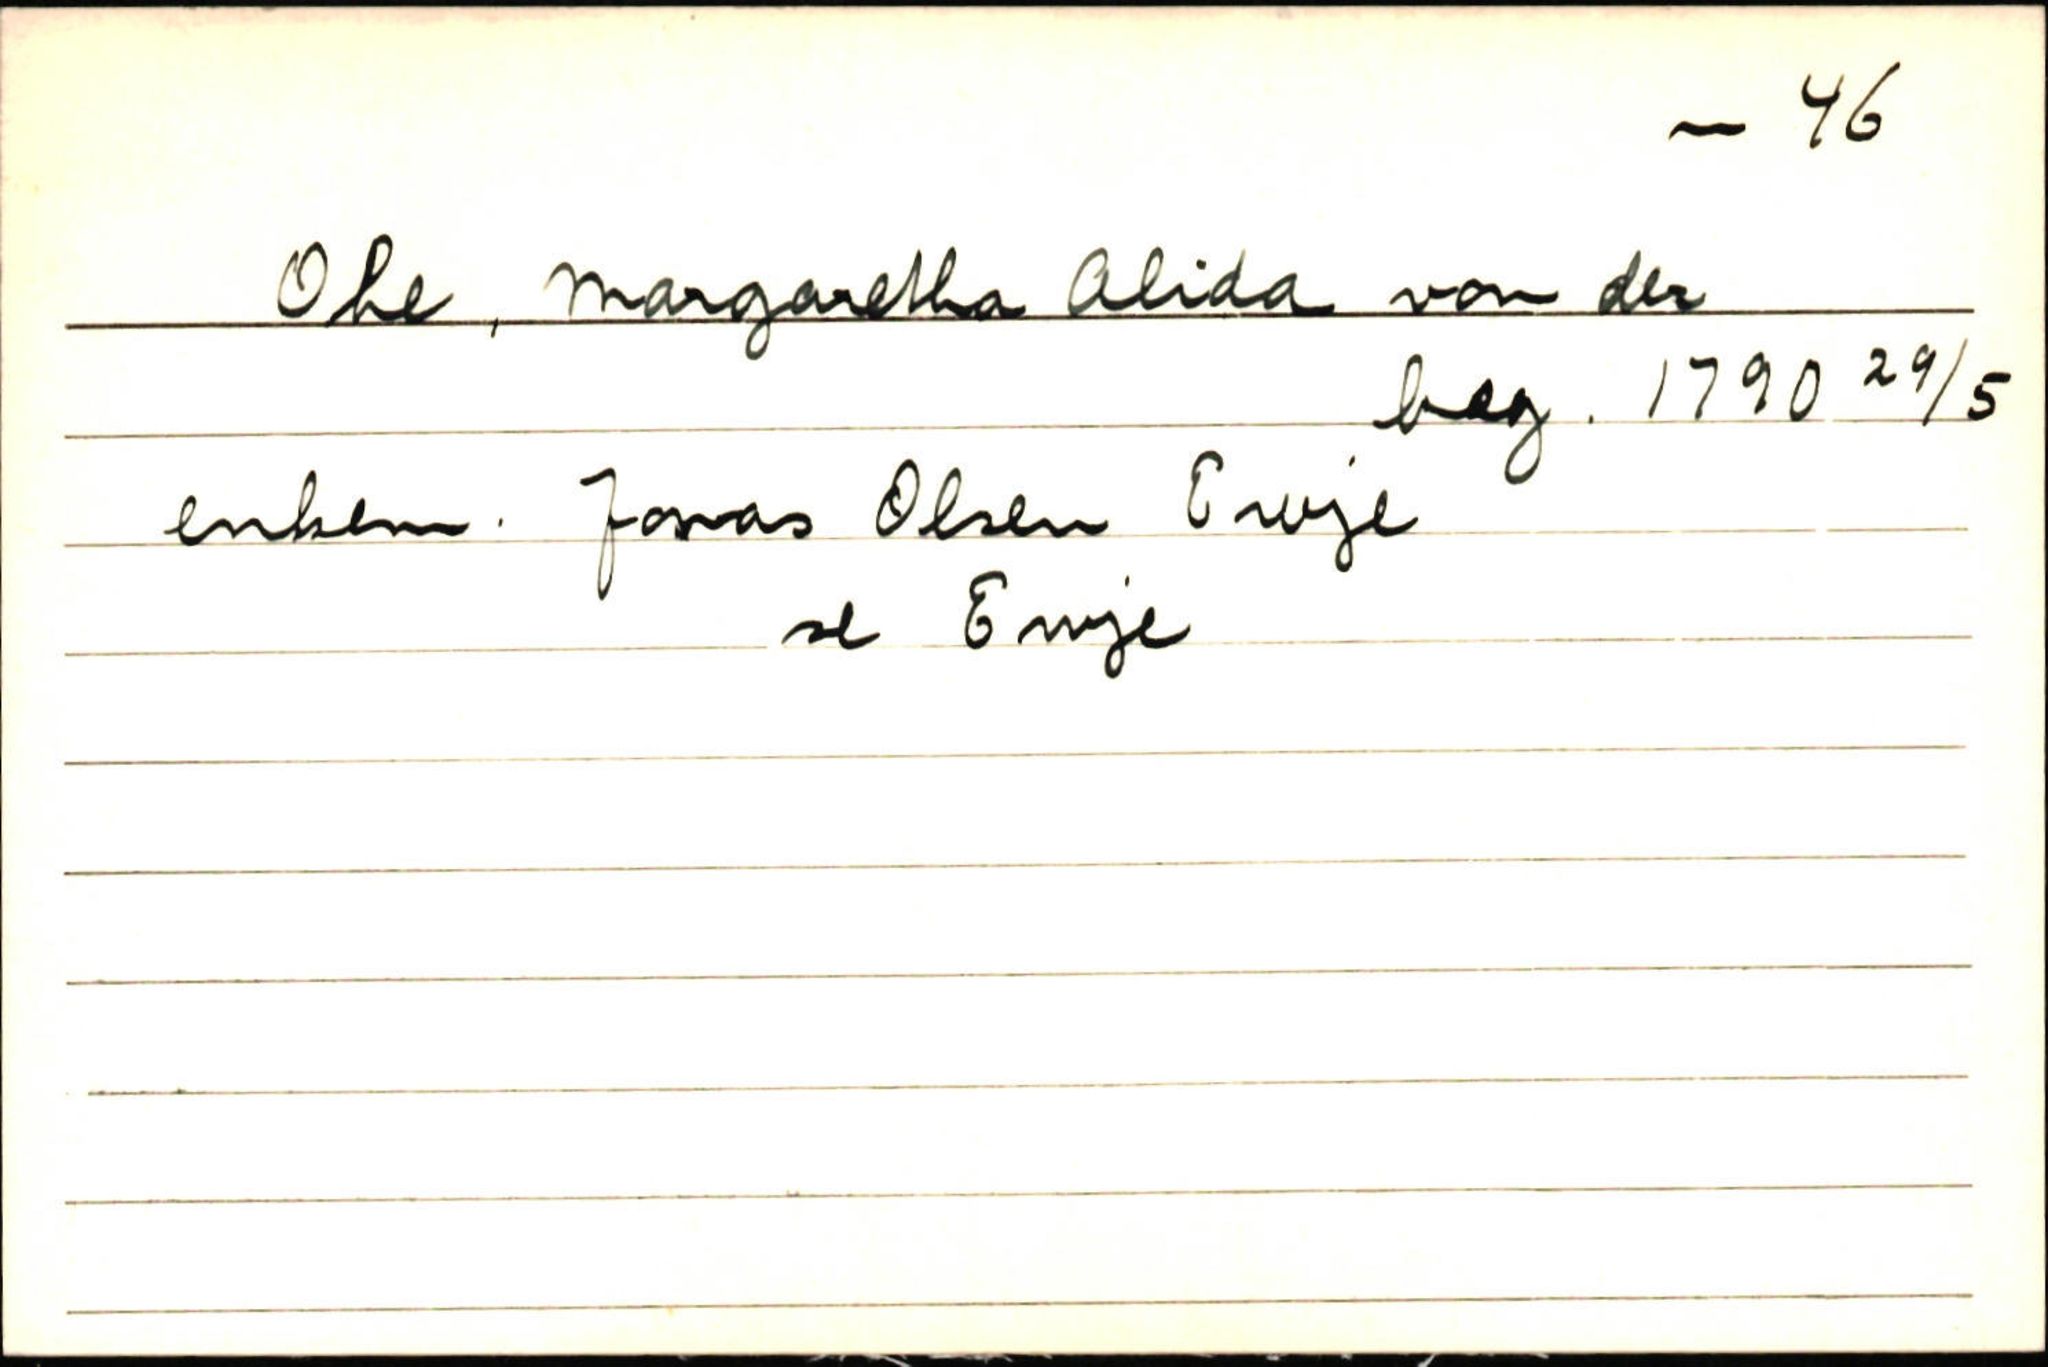 – 46
Ohe, Margaretha Alida von der
beg. 1790 29/5
enkem. Jonas Olsen Ewje
se Ewje